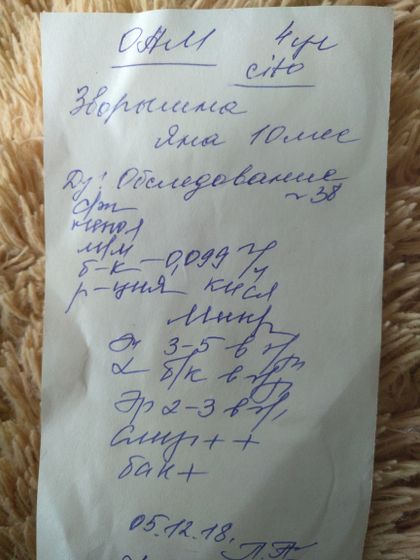 ОАМ 4 уч
cito
Зворыгина
Яна 10 мес
Дз: Обследование
~38
с/ж
непол
м/м
б-к – 0,099 г/
р-ция кисл
Микр
Эп 3-5 в п/з
L б/к в п/з
Эр 2-3 в п/з
Слизь + +
бак +
05.12.18.